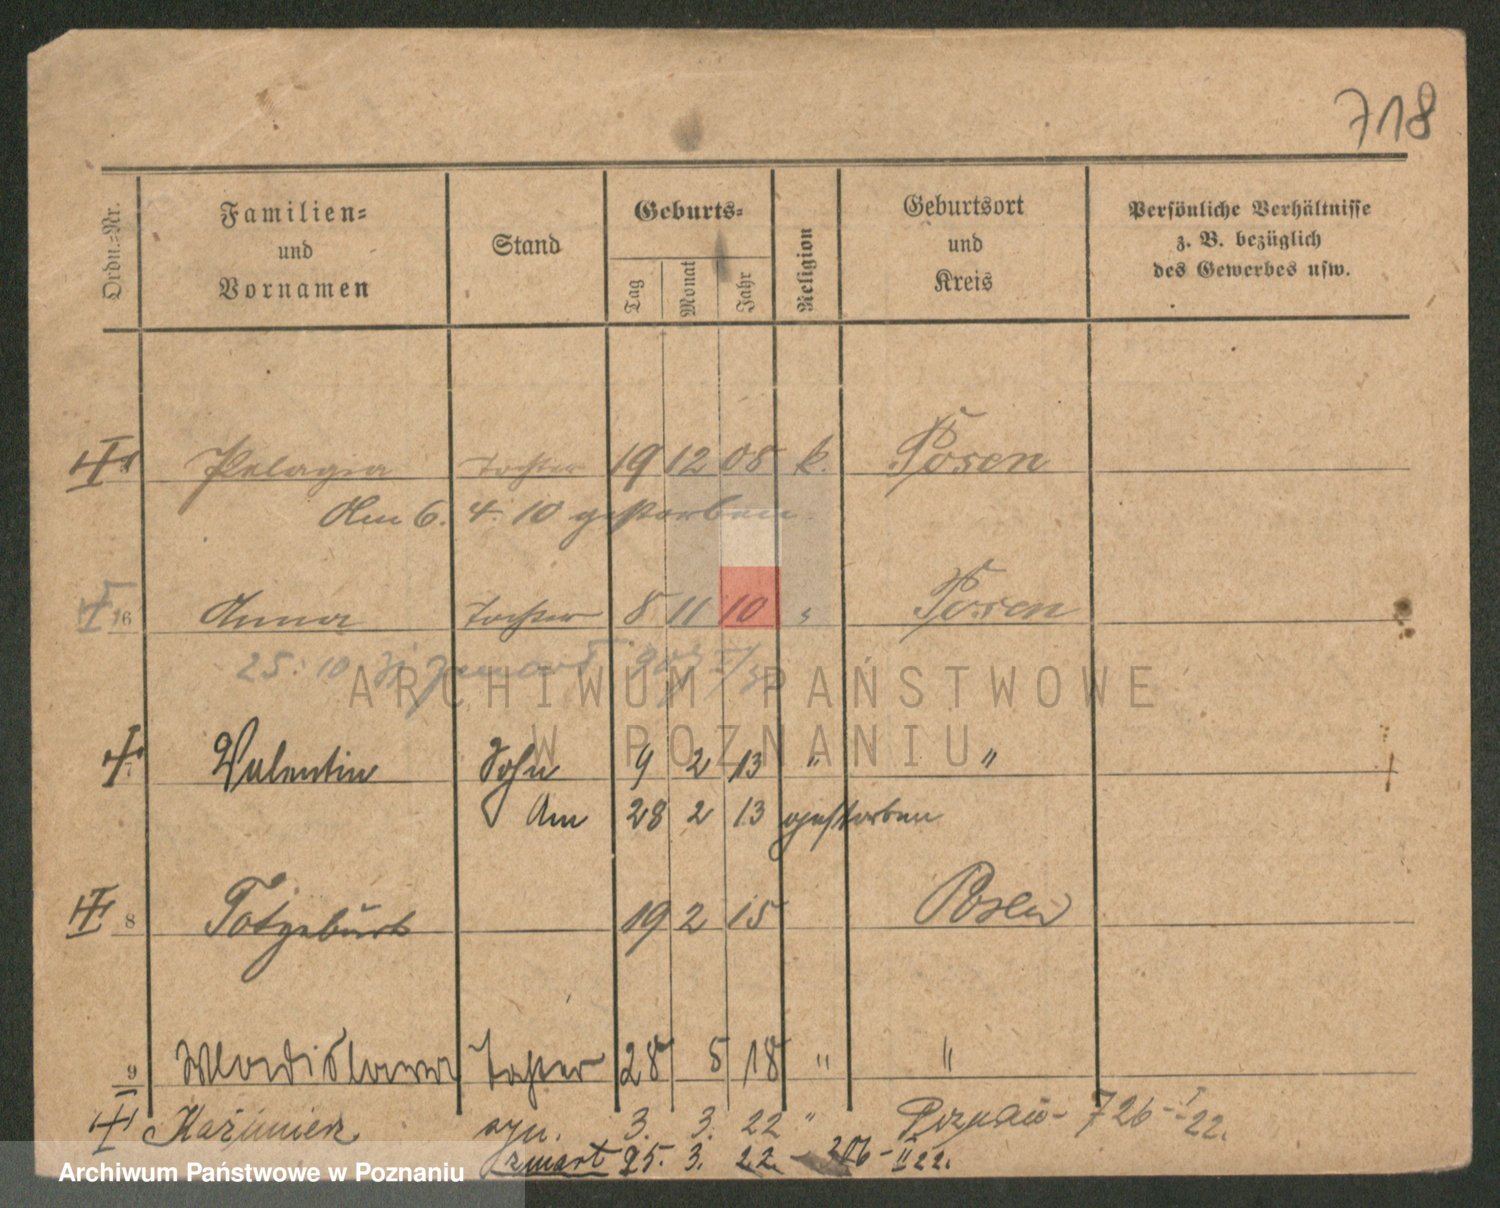 718
Ordn.-Nr. Familien- und Vornamen Stand Geburts- Tag Monat Jahr Religion Geburtsort und Kreis Persönliche Verhältnisse z. B. bezüglich des Gewerbes usw.
Pelagia Tochter 19 12 08 k. Posen
Am 6. 4. 10 gestorben.
6 Anna Tochter 8 11 10 " Posen
25. 10
ARCHIWUM PAŃSTWOWE
W POZNANIU
7 Valentin Sohn 9 2 13 " "
Am 28 2 13 gestorben
8 Totgeburt 19 2 15 Posen
9 Wladislawa Tochter 28 5 18 " "
Kazimierz syn. 3. 3. 22 " Poznań - 726 - I - 22.
zmart 25. 3. 22. - 206 - II 22.
Archiwum Państwowe w Poznaniu